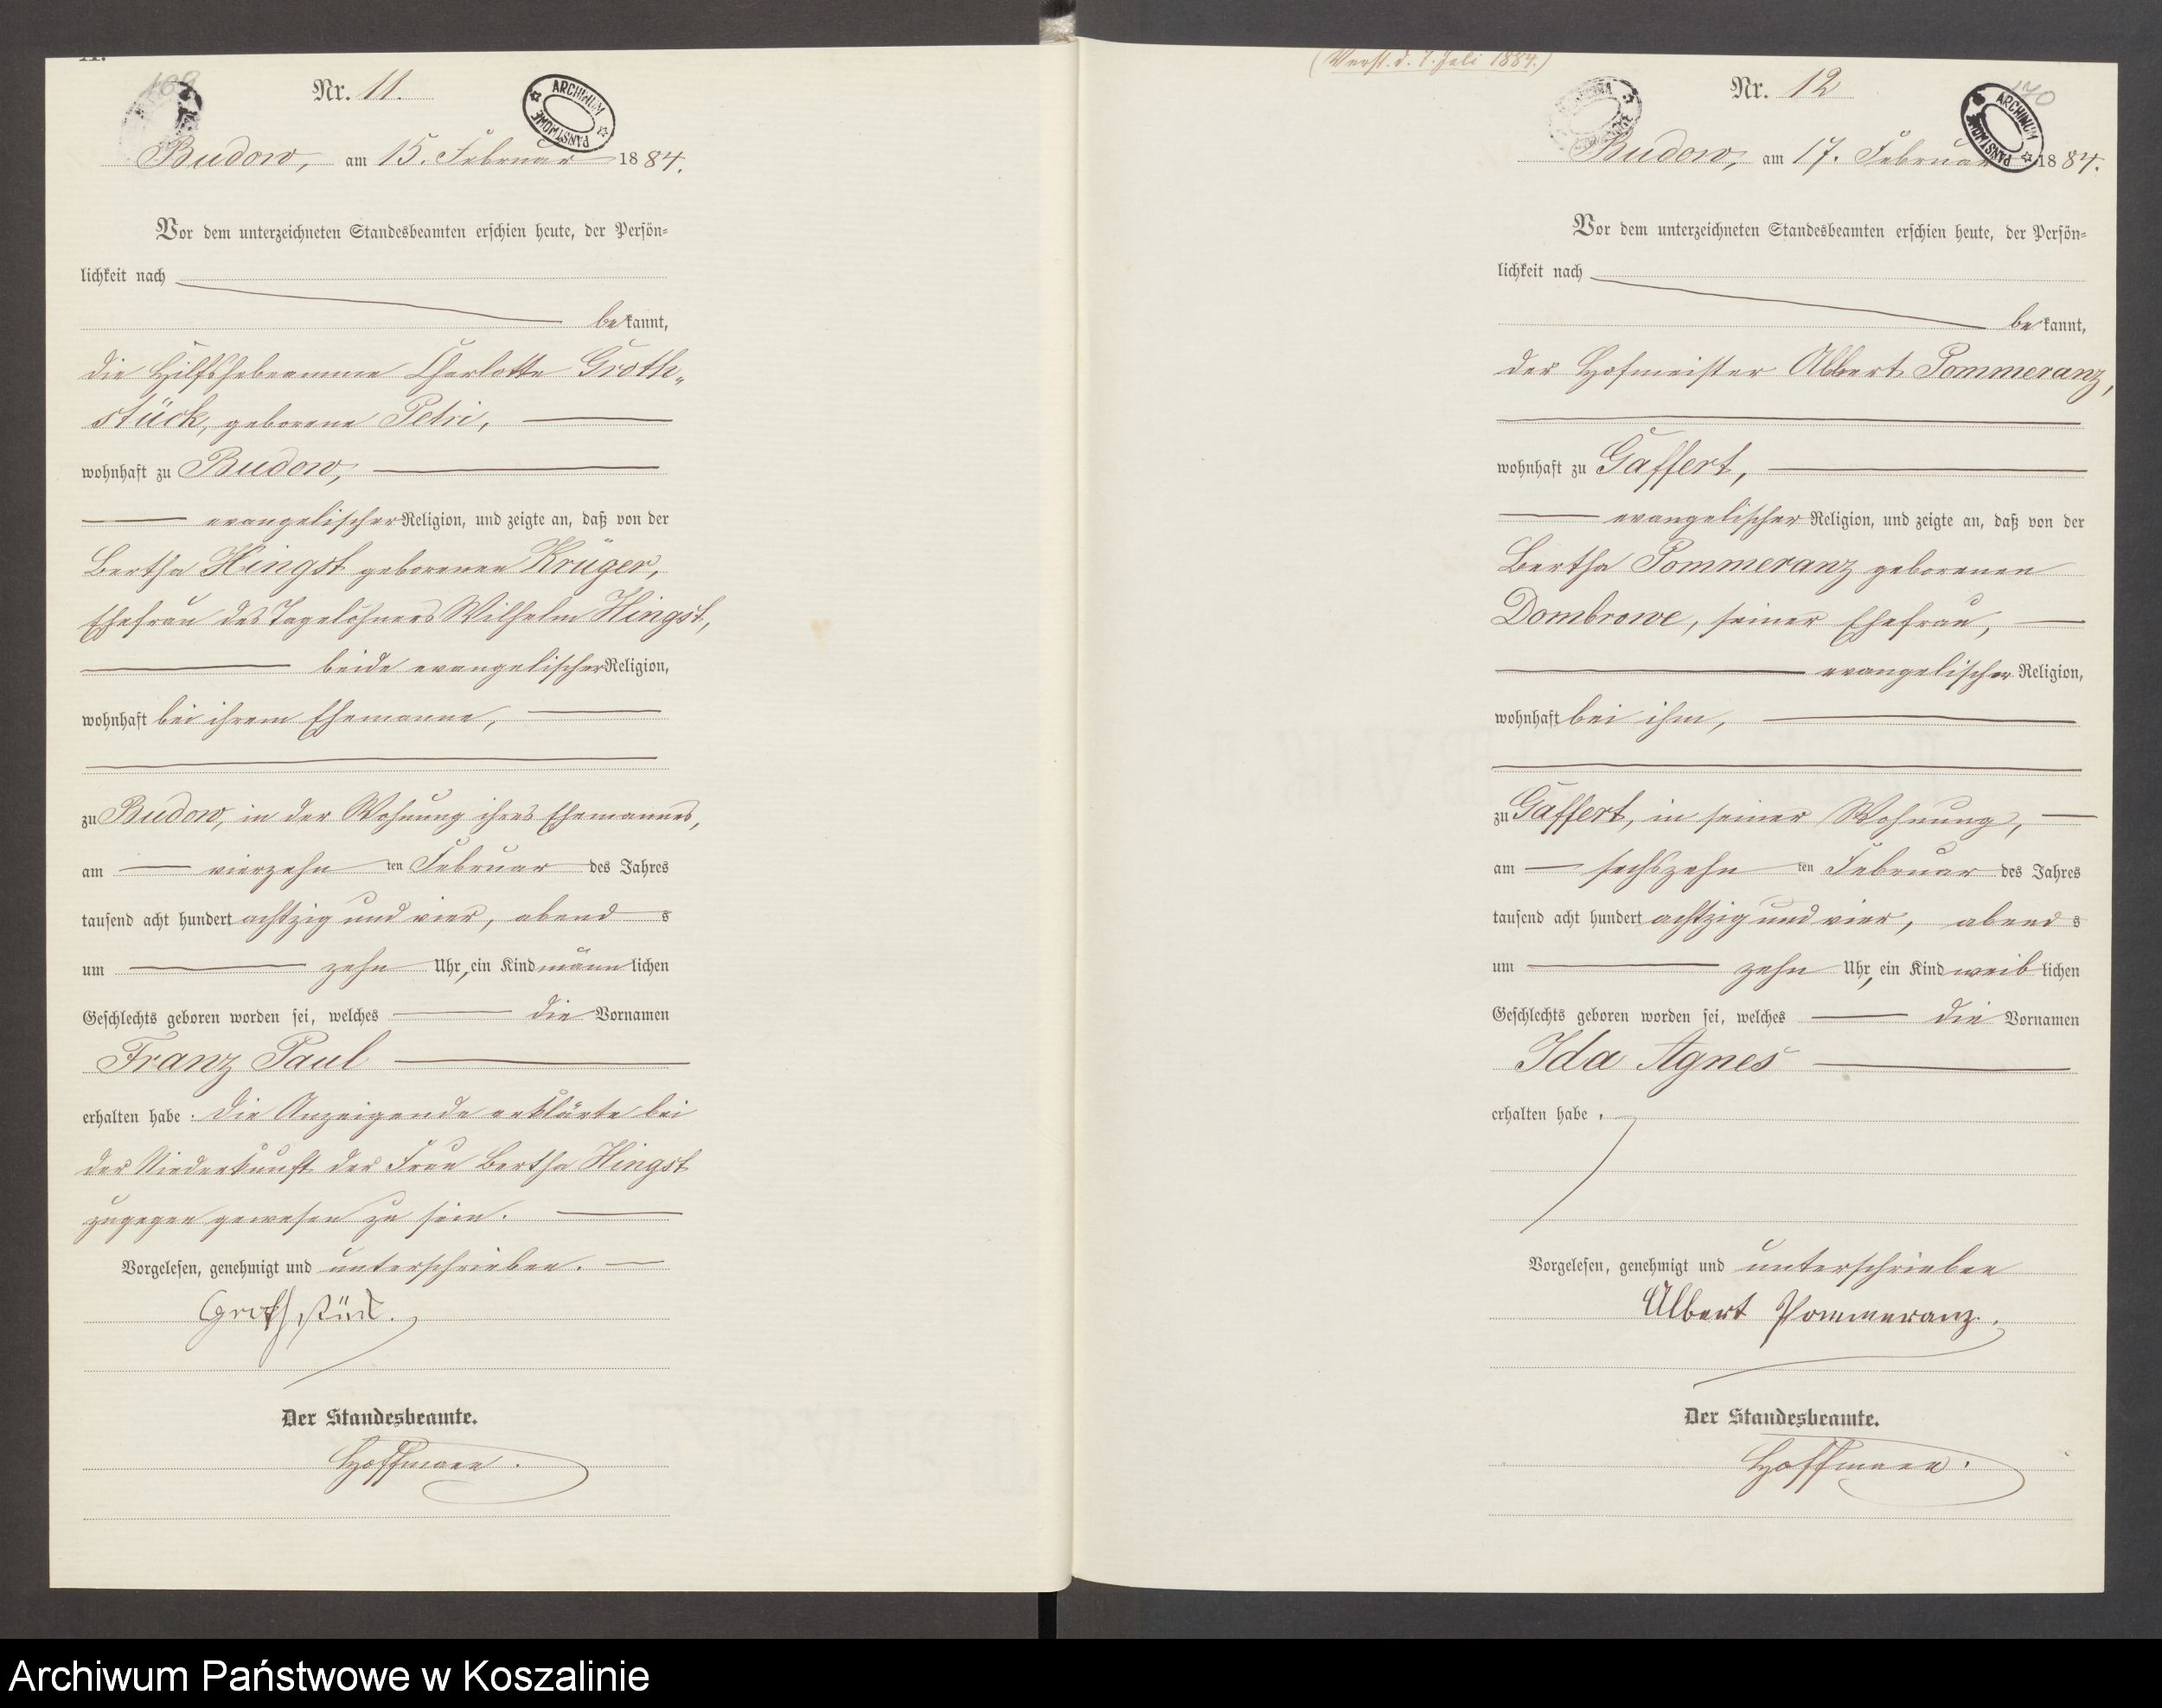 Nr. 11.
ARCHIWUM PAŃSTWOWE
Budow, am 15. Februar 1884.
Vor dem unterzeichneten Standesbeamten erschien heute, der Persön-
lichkeit nach
bekannt,
die Hilfshebeamme Charlotte Groth-
stück, geborene Petri,
wohnhaft zu Budow,
evangelischer Religion, und zeigte an, daß von der
Bertha Hingst geborenen Krüger,
Ehefrau des Tagelöhners Wilhelm Hingst,
beide evangelischer Religion,
wohnhaft bei ihrem Ehemanne,
zu Budow, in der Wohnung ihres Ehemannes,
am vierzehn ten Februar des Jahres
tausend acht hundert achtzig und vier, abends
um zehn Uhr, ein Kind männlichen
Geschlechts geboren worden sei, welches die Vornamen
Franz Paul
erhalten habe. Die Anzeigende erklärte bei
der Niederkunft der Frau Bertha Hingst
zugegen gewesen zu sein.
Vorgelesen, genehmigt und unterschrieben.
Grothstück.
Der Standesbeamte.
Hoffmann.
(Verst. d. 7. Juli 1884.)
Nr. 12
170
ARCHIWUM PAŃSTWOWE
Budow, am 17. Februar 1884.
Vor dem unterzeichneten Standesbeamten erschien heute, der Persön-
lichkeit nach
bekannt,
der Hofmeister Albert Pommeranz,
wohnhaft zu Gaffert,
evangelischer Religion, und zeigte an, daß von der
Bertha Pommeranz geborenen
Dombrowe, seiner Ehefrau,
evangelischer Religion,
wohnhaft bei ihm,
zu Gaffert, in seiner Wohnung,
am sechszehn ten Februar des Jahres
tausend acht hundert achtzig und vier, abends
um zehn Uhr, ein Kind weiblichen
Geschlechts geboren worden sei, welches die Vornamen
Ida Agnes
erhalten habe.
Vorgelesen, genehmigt und unterschrieben
Albert Pommeranz.
Der Standesbeamte.
Hoffmann.
Archiwum Państwowe w Koszalinie